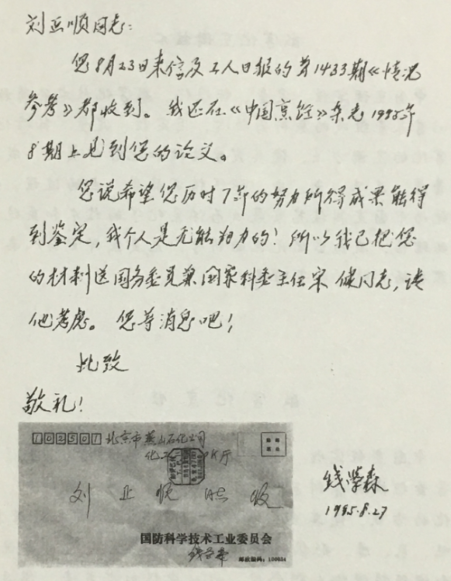 刘亚顺同志：
您8月23日来信及工人日报的第1433期《情况
参考》都收到。我还在《中国烹饪》杂志1995年
8期上见到您的论文。
您说希望您历时7年的努力所得成果能得
到鉴定，我个人是无能为力的！所以我已把您
的材料送国务委员兼国家科委主任宋健同志，请
他考虑。您等消息吧！
此致
敬礼！
钱学森
1995.8.27
102501 北京市燕山石化公司
刘亚顺 同志 收
国防科学技术工业委员会
钱学森
邮政编码：